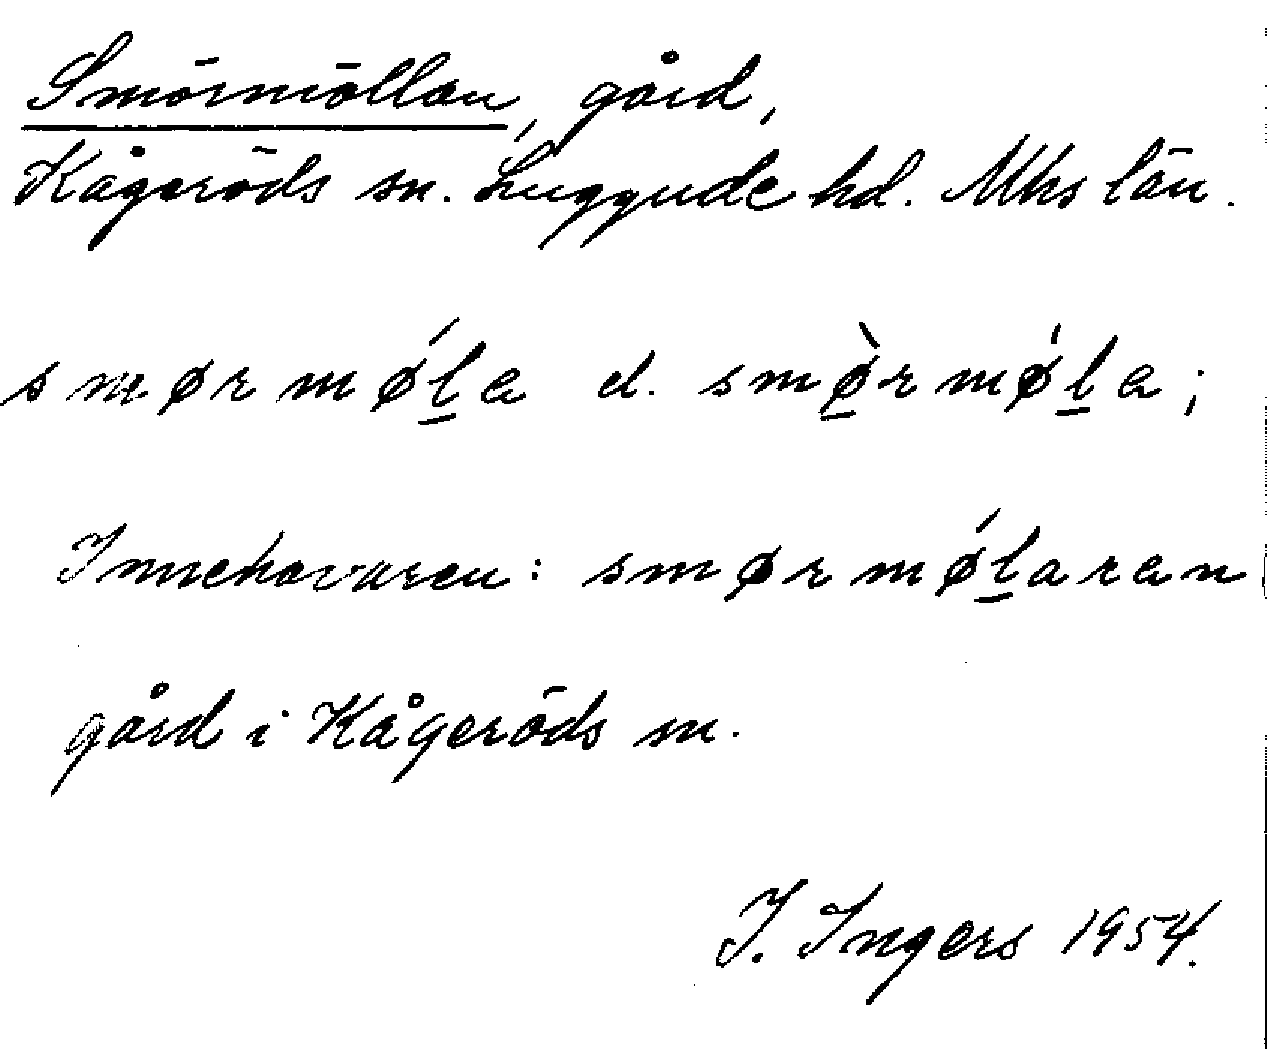 Smörmöllan, gård,
Kågeröds sn. Luggude hd. Mhs län.
smørmǿl̲a d. smø̲̀rmǿl̲a;
Innehavaren: smørmǿl̲aran
gård i Kågeröds sn.
I. Ingers 1954.